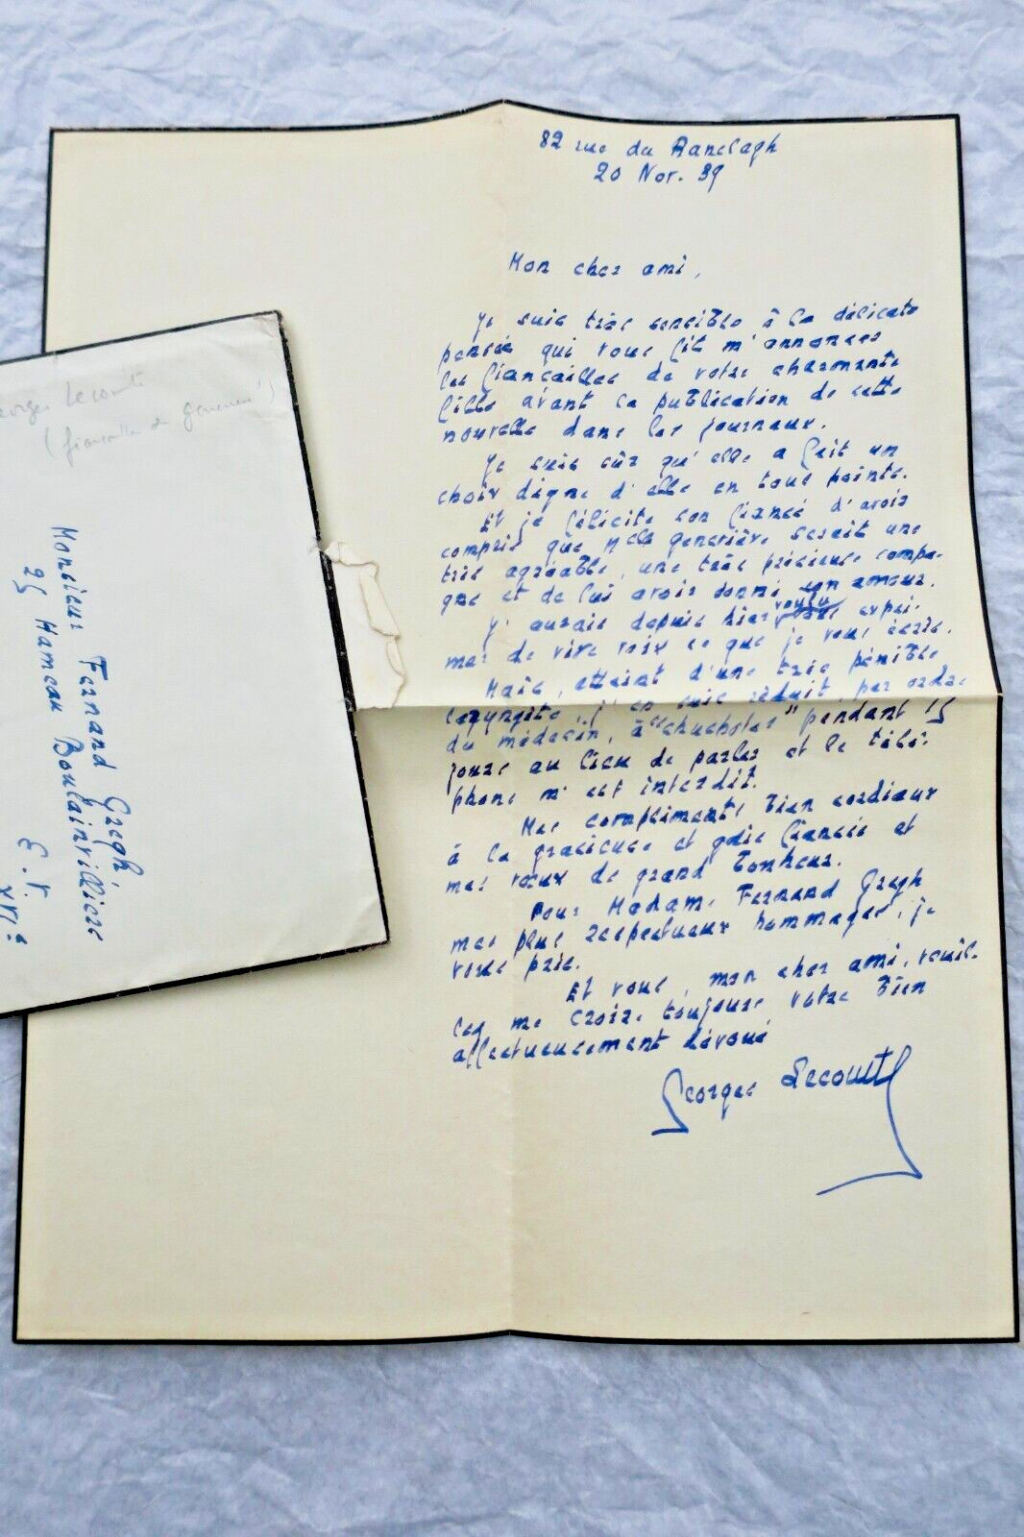 82 rue du Ranelagh
20 Nov. 39
Mon cher ami,
Je suis très sensible à la délicate
pensée qui vous fit m'annoncer
les fiançailles de votre charmante
fille avant la publication de cette
nouvelle dans les journaux.
Je suis sûr qu'elle a fait un
choix digne d'elle en tous points.
Et je félicite son fiancé d'avoir
compris que Mlle Geneviève serait une
très agréable, une très précieuse compa-
gne et de lui avoir donné son amour.
J'aurais depuis hier voulu vous expri-
mer de vive voix ce que je vous écris.
Mais, atteint d'une très pénible
laryngite, j'en suis réduit, par ordre
du médecin, à "chuchoter" pendant 15
jours au lieu de parler et le télé-
phone m'est interdit.
Mes compliments bien cordiaux
à la gracieuse et gaie fiancée et
mes vœux de grand bonheur.
Pour Madame Fernand Gregh
mes plus respectueux hommages, je
vous prie.
Et vous, mon cher ami, veuil-
lez me croire toujours votre bien
affectueusement dévoué
Georges Lecomte
Georges Lecomte
(fiançailles de Geneviève)
Monsieur Fernand Gregh
25 Hameau Boulainvilliers
E.V.
XVIe